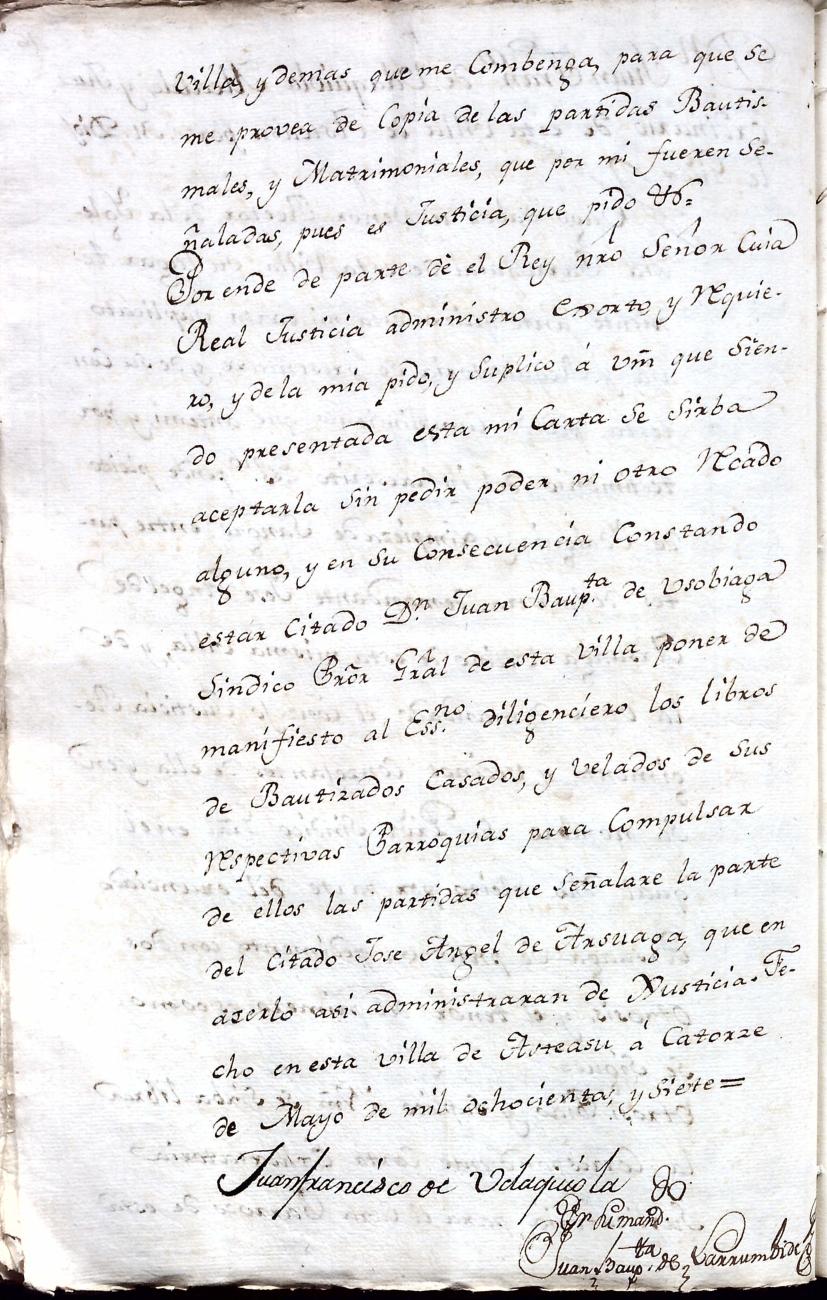 Villa, y demas que me Combenga, para que se
me provea de Copia de las partidas Bautis-
males, y Matrimoniales, que por mi fueren se-
ñaladas, pues es Justicia, que pido &c=
Por ende de parte de el Rey nr̃o Señor Cuia
Real Justicia administro exorto, y Requie-
ro, y de la mia pido, y Suplico á Vm̃ que sien-
do presentada esta mi Carta se sirba
aceptarla sin pedir poder, ni otro Rcado
alguno, y en su Consecuencia Constando
estar Citado Dn Juan Baupta de Usobiaga
Sindico Pr̃or Gr̃al de esta villa poner de
manifiesto al Essno diligenciero los libros
de Bautizados Casados, y velados de sus
Respectivas Parroquias para Compulsar
de ellos las partidas que señalare la parte
del Citado Jose Angel de Arsuaga, que en
acerlo asi administraran de Justicia. Fe-
cho en esta villa de Asteasu á Catorze
de Mayo de mil ochocientos, y siete=
Juan francisco de
Por su mand.
Juan Baupta de Larrumbide